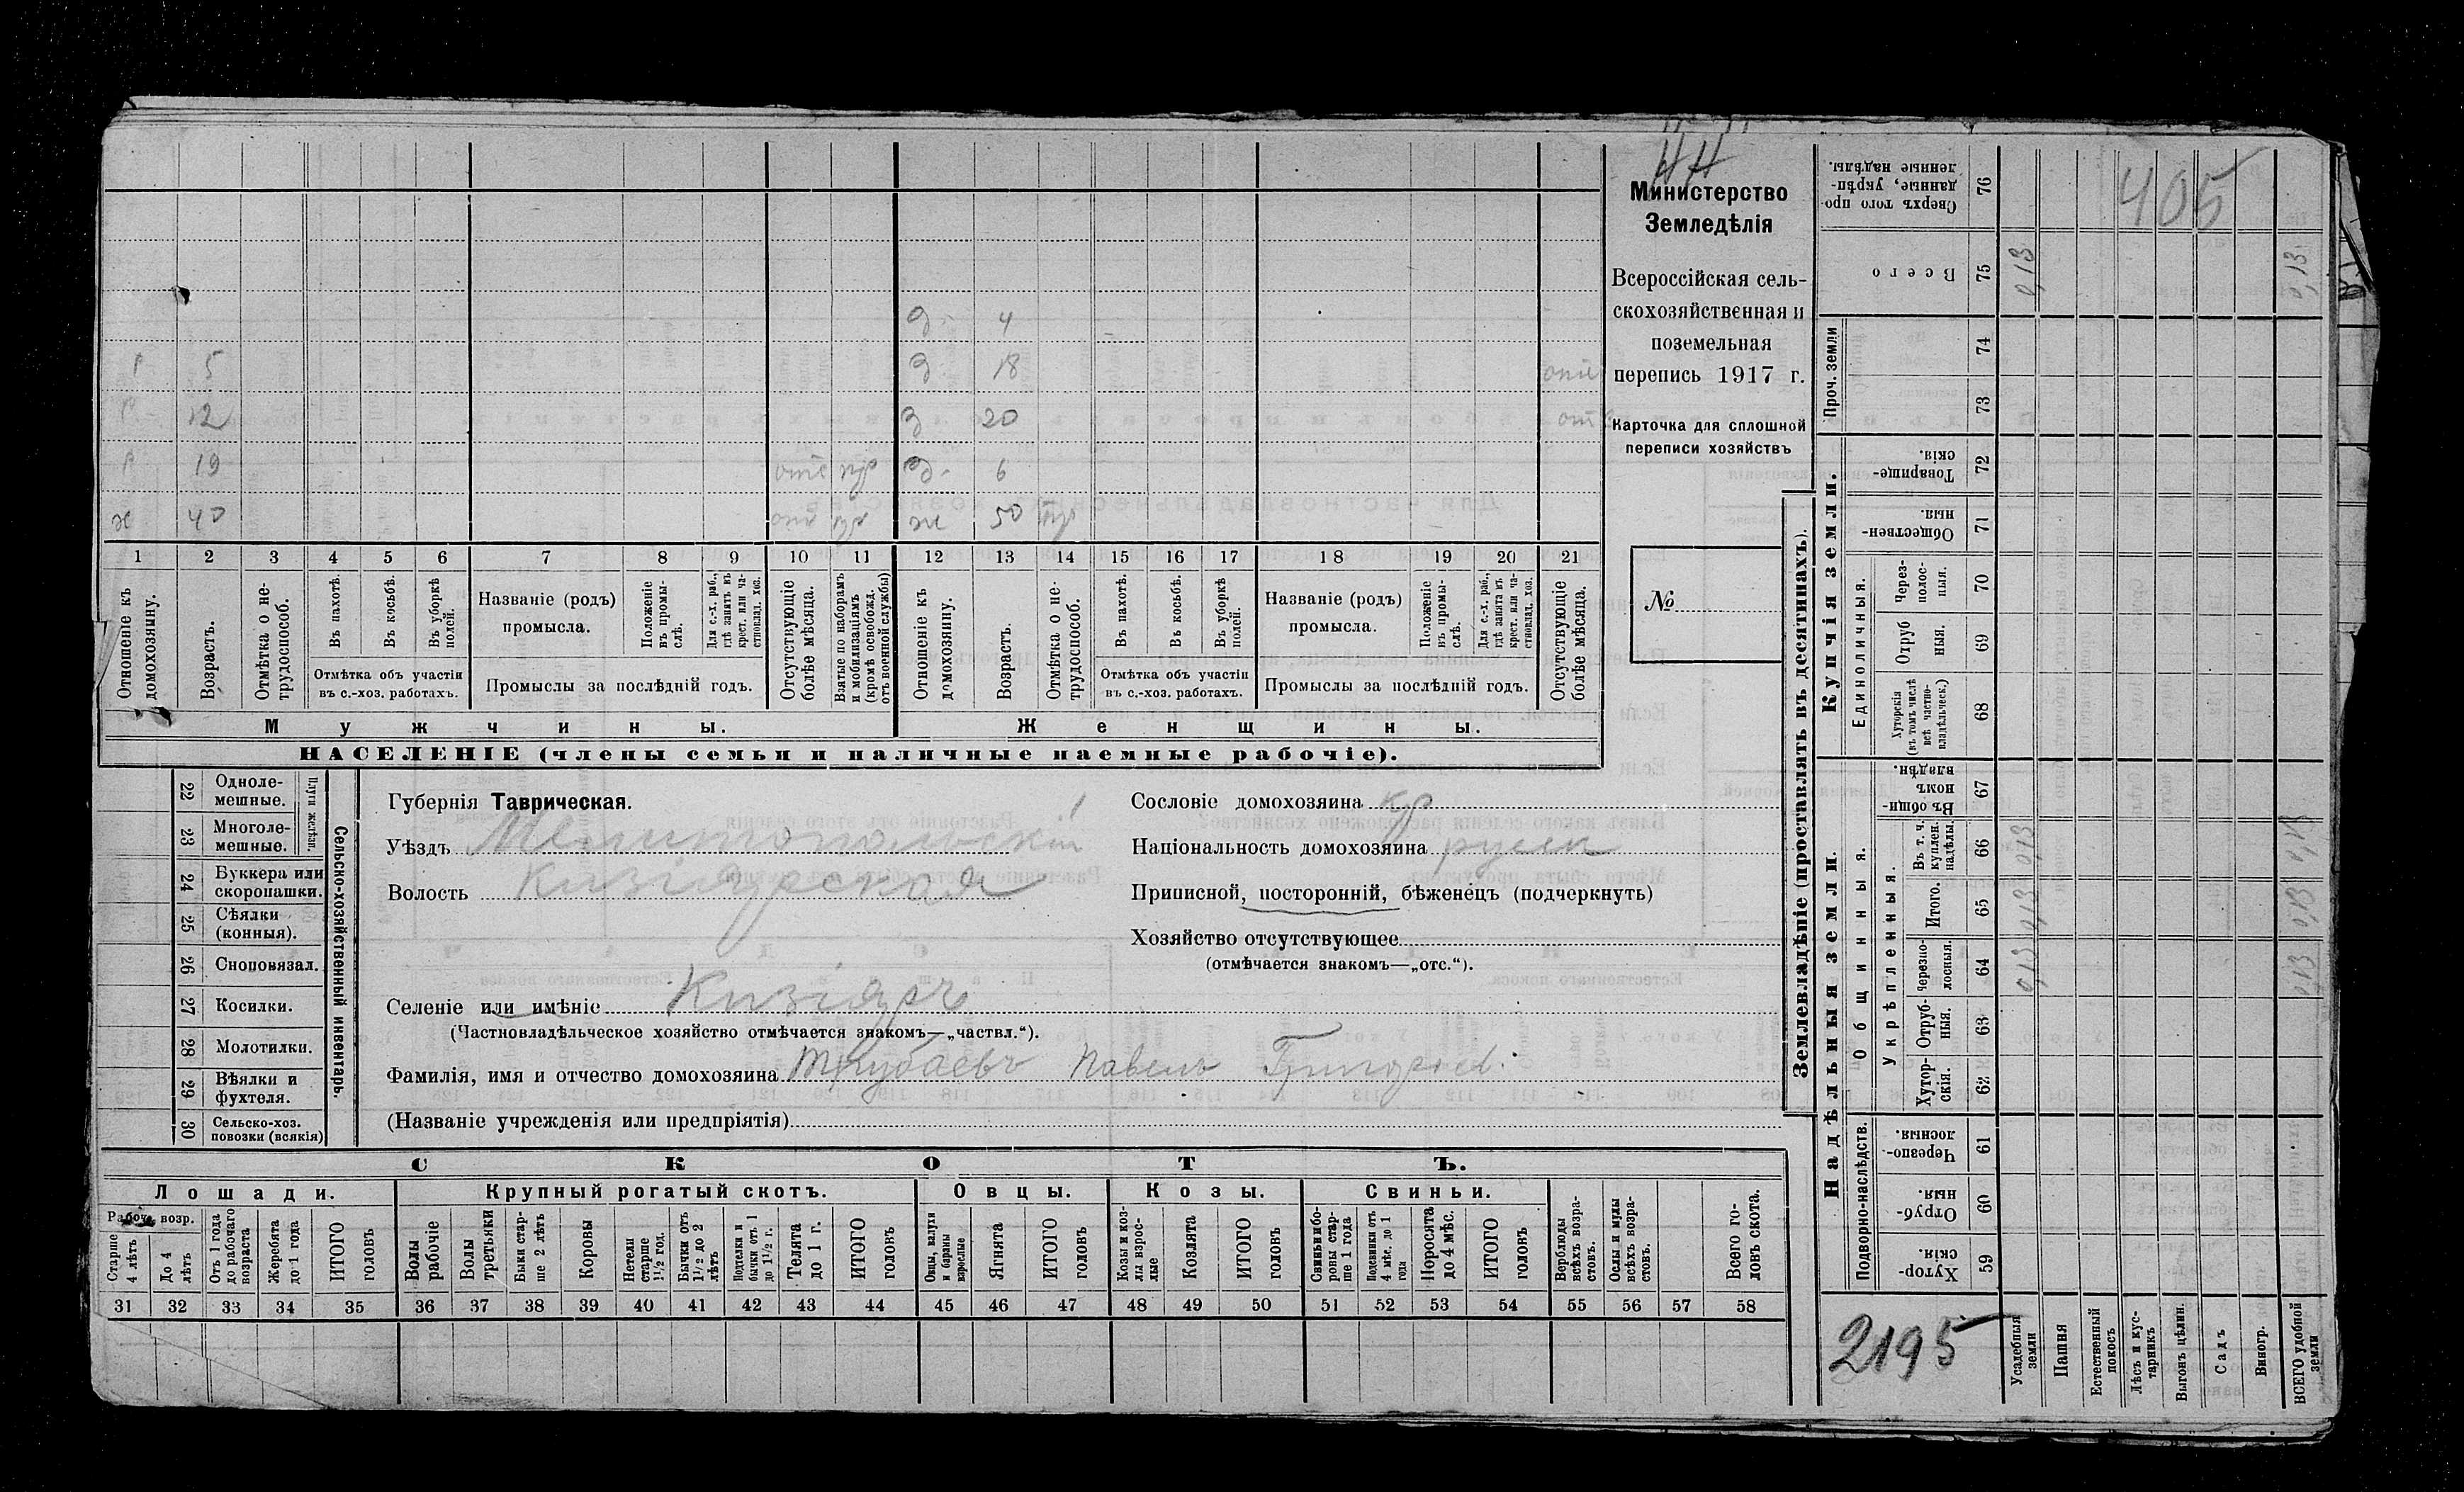 Министерство
Земледѣлія
Всероссійская сель-
скохозяйственная и
поземельная
перепись 1917 г.
Карточка для сплошной
переписи хозяйствъ
№
405
д. 4
р 5 д. 18 отс
р 12 д 20 отс
р 19 отс д. 6
х 40 ж 50
1 2 3 4 5 6 7 8 9 10 11 12 13 14 15 16 17 18 19 20 21
Отношеніе къ домохозяину.
Возрастъ.
Отмѣтка о не-трудоспособ.
Въ пахотѣ.
Въ косьбѣ.
Въ уборкѣ полей.
Отмѣтка объ участіи
въ с.-хоз. работахъ.
Названіе (родъ)
промысла.
Положеніе въ промы-слѣ.
Для с.-х. раб., гдѣ занятъ въ крест. или ча-стновлад. хоз.
Промыслы за послѣдній годъ.
Отсутствующіе болѣе мѣсяца.
Взятые по наборамъ и мобилизаціямъ (кромѣ освобожд. отъ военной службы)
Отношеніе къ домохозяину.
Возрастъ.
Отмѣтка о не-трудоспособ.
Въ пахотѣ.
Въ косьбѣ.
Въ уборкѣ полей.
Отмѣтка объ участіи
въ с.-хоз. работахъ.
Названіе (родъ)
промысла.
Положеніе въ промы-слѣ.
Для с.-х. раб., гдѣ занята въ крест. или ча-стновлад. хоз.
Промыслы за послѣдній годъ.
Отсутствующіе болѣе мѣсяца.
Мужчины.
Женщины.
НАСЕЛЕНІЕ (члены семьи и наличные наемные рабочіе).
Сельско-хозяйственный инвентарь.
Плуги желѣзн.
22 Одноле-мешные.
23 Многоле-мешные.
24 Буккера или скоропашки.
25 Сѣялки (конныя).
26 Сноповязал.
27 Косилки.
28 Молотилки.
29 Вѣялки и фухтеля.
30 Сельско-хоз. повозки (всякія)
Губернія Таврическая.
Уѣздъ Мелитопольскій
Волость Кизіярская
Селеніе или имѣніе Кизіяръ
(Частновладѣльческое хозяйство отмѣчается знакомъ—„частвл.“).
Фамилія, имя и отчество домохозяина Трубаевъ Павелъ Григорьев.
(Названіе учрежденія или предпріятія)
Сословіе домохозяина кр
Національность домохозяина русск
Приписной, посторонній, бѣженецъ (подчеркнуть)
Хозяйство отсутствующее
(отмѣчается знакомъ—„отс.“).
СКОТЪ.
Лошади. Крупный рогатый скотъ. Овцы. Козы. Свиньи.
Рабоч. возр.
Старше 4 лѣтъ
До 4 лѣтъ
Отъ 1 года до рабочаго возраста
Жеребята до 1 года
ИТОГО головъ
Волы рабочіе
Волы третьяки
Быки стар-ше 2 лѣтъ
Коровы
Нетели старше 1½ год.
Бычки отъ 1½ до 2 лѣтъ
Подтелки и бычки отъ 1 до 1½ г.
Телята до 1 г.
ИТОГО головъ
Овцы, валухи и бараны взрослые
Ягнята
ИТОГО головъ
Козы и коз-лы взрос-лые
Козлята
ИТОГО головъ
Свиньи и бо-ровы стар-ше 1 года
Подсвинки отъ 4 мѣс. до 1 года
Поросята до 4 мѣс.
ИТОГО головъ
Верблюды всѣхъ возра-стовъ.
Ослы и мулы всѣхъ возра-стовъ.
Всего го-ловъ скота.
31 32 33 34 35 36 37 38 39 40 41 42 43 44 45 46 47 48 49 50 51 52 53 54 55 56 57 58
Землевладѣніе (проставлять въ десятинахъ).
Купчія земли.
Надѣльныя земли.
Сверхъ того про-данные, укрѣп-ленные надѣлы. 76
Всего 75 0,13 0,13
Проч. земли 74 73
Товарище-скія. 72
Обществен-ныя. 71
Единоличныя.
Через-полос-ныя. 70
Отруб ныя. 69
Хуторскія (въ томъ числѣ всѣ частно-владѣльческ.) 68
Общинныя.
Въ общи-номъ владѣн. 67
Укрѣпленныя.
Въ т. ч. куплен. надѣлы. 66 0,13 0,13
Итого. 65 0,13 0,13
Черезпо-лосныя. 64 0,13 0,13
Отруб-ныя. 63
Хутор-скія. 62
Подворно-наслѣдств.
Черезпо-лосныя. 61
Отруб-ныя. 60
Хутор-скія. 59
2195
Усадебныя земли
Пашня
Естественный покосъ
Лѣсъ и кус-тарникъ
Выгонъ цѣлин.
Садъ
Виногр.
ВСЕГО удобной земли